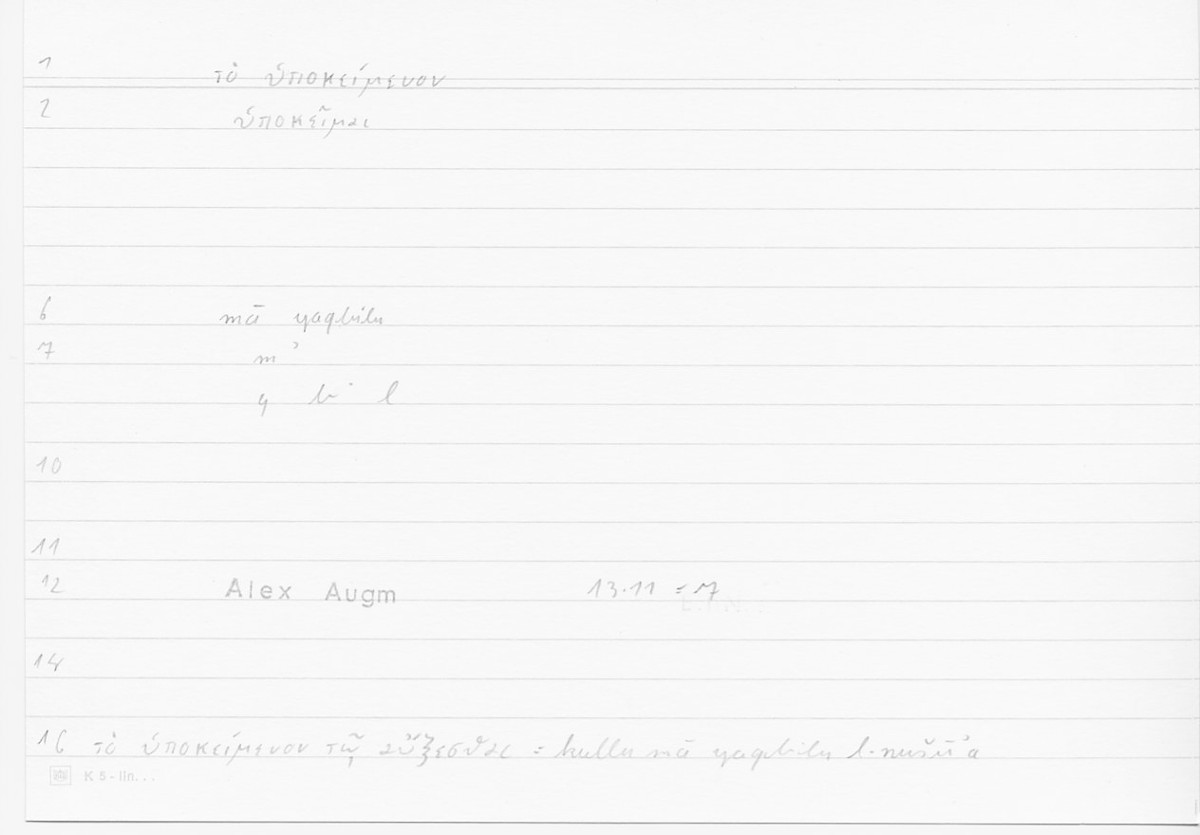 1 τὸ ὑποκείμενον
2 ὑποκεῖμαι
6 mā yaqbilu
7 mʾ
q b l
10
11
12 Alex Augm 13.11 = 7
14
16 τὸ ὑποκείμενον τῷ αὔξεσθαι = kullu mā yaqbilu l-nušūʾa
K 5 - lin...